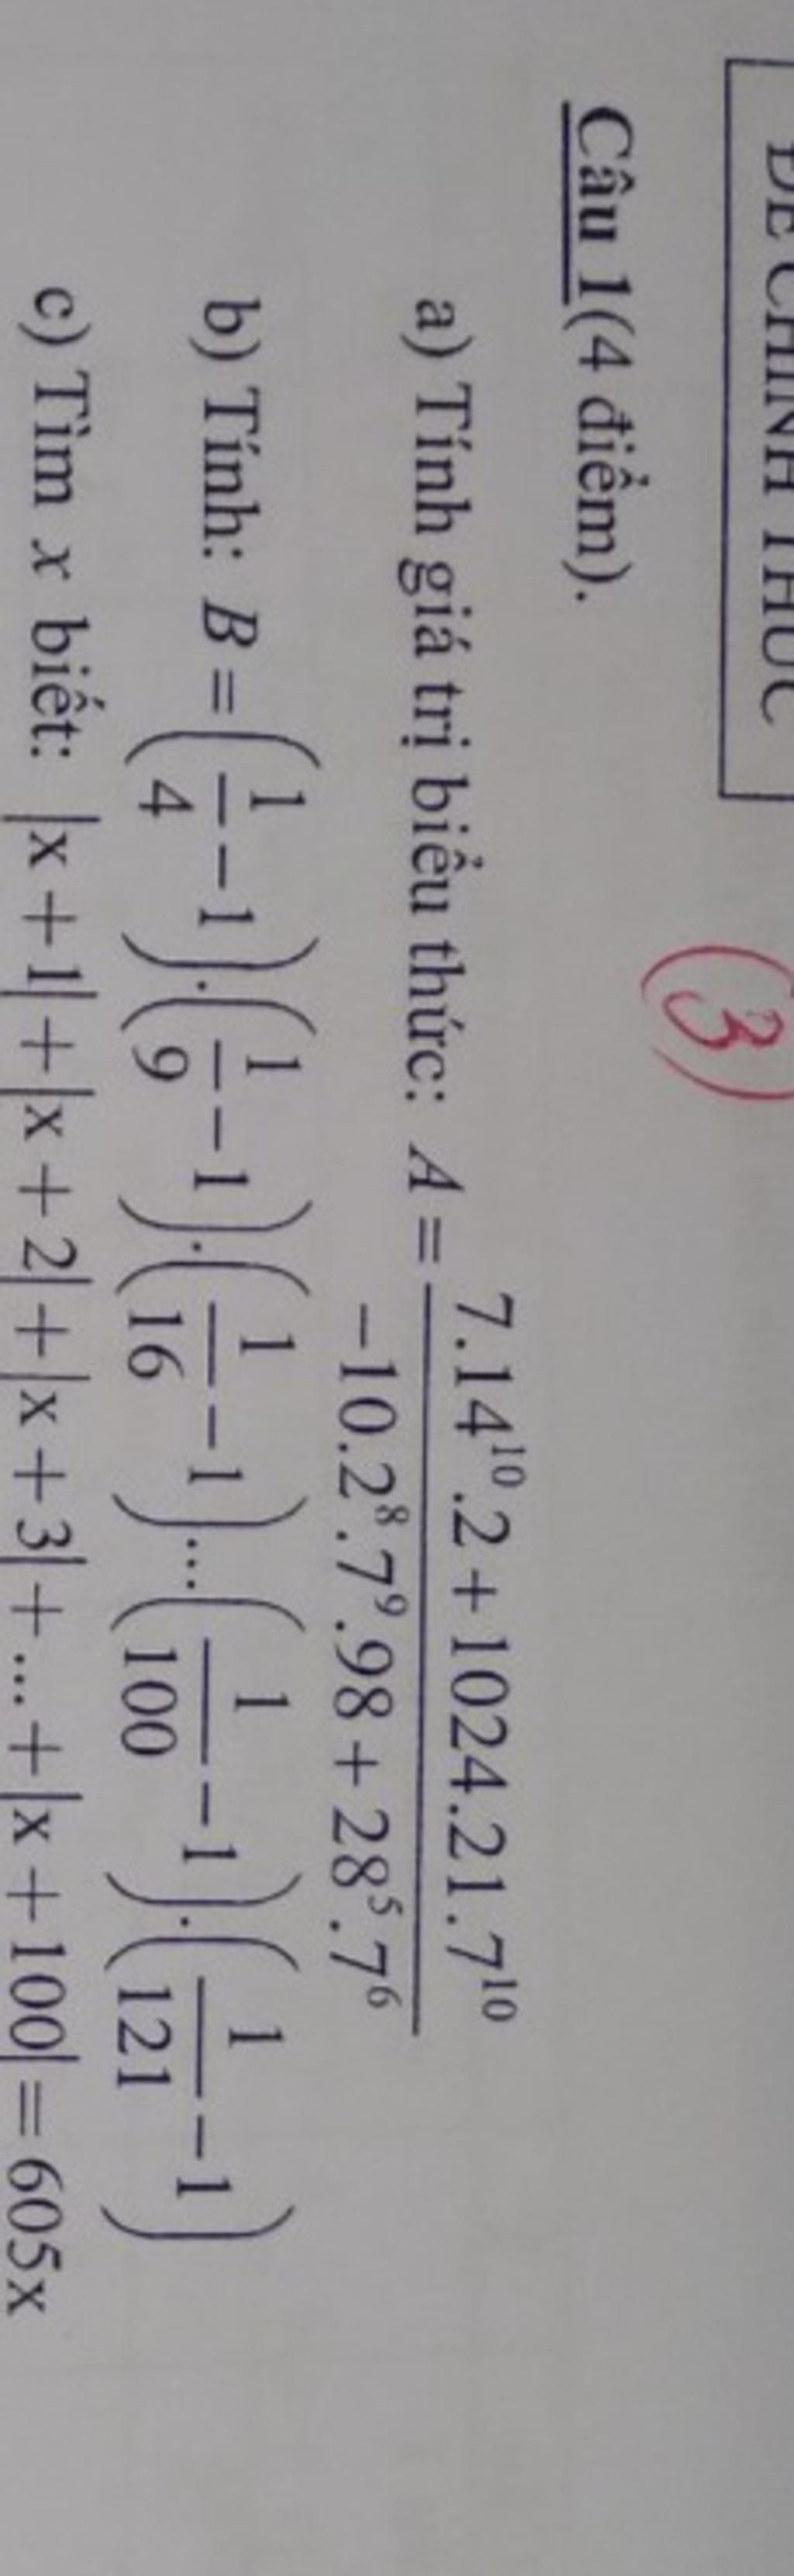 ĐỀ CHÍNH THỨC
(3)
Câu 1(4 điểm).
a) Tính giá trị biểu thức: A = \frac{7.14^{10}.2+1024.21.7^{10}}{-10.2^8.7^9.98+28^5.7^6}
b) Tính: B = (\frac{1}{4}-1).(\frac{1}{9}-1).(\frac{1}{16}-1)...(\frac{1}{100}-1).(\frac{1}{121}-1)
c) Tìm x biết: |x+1|+|x+2|+|x+3|+...+|x+100|=605x